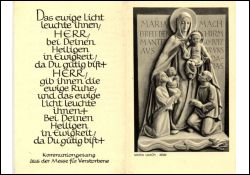 Das ewige licht
leuchte ihnen,
HERR,
bei Deinen
Heiligen
in Ewigkeit,
da Du gütig bist+
HERR,
gib ihnen die
ewige Ruhe,
und das ewige
licht leuchte
ihnen+
Bei Deinen
Heiligen
in Ewigkeit,
da Du gütig bist+
Kommuniongesang
aus der Messe für Verstorbene
MARIA MACH
MANTEL
AUS